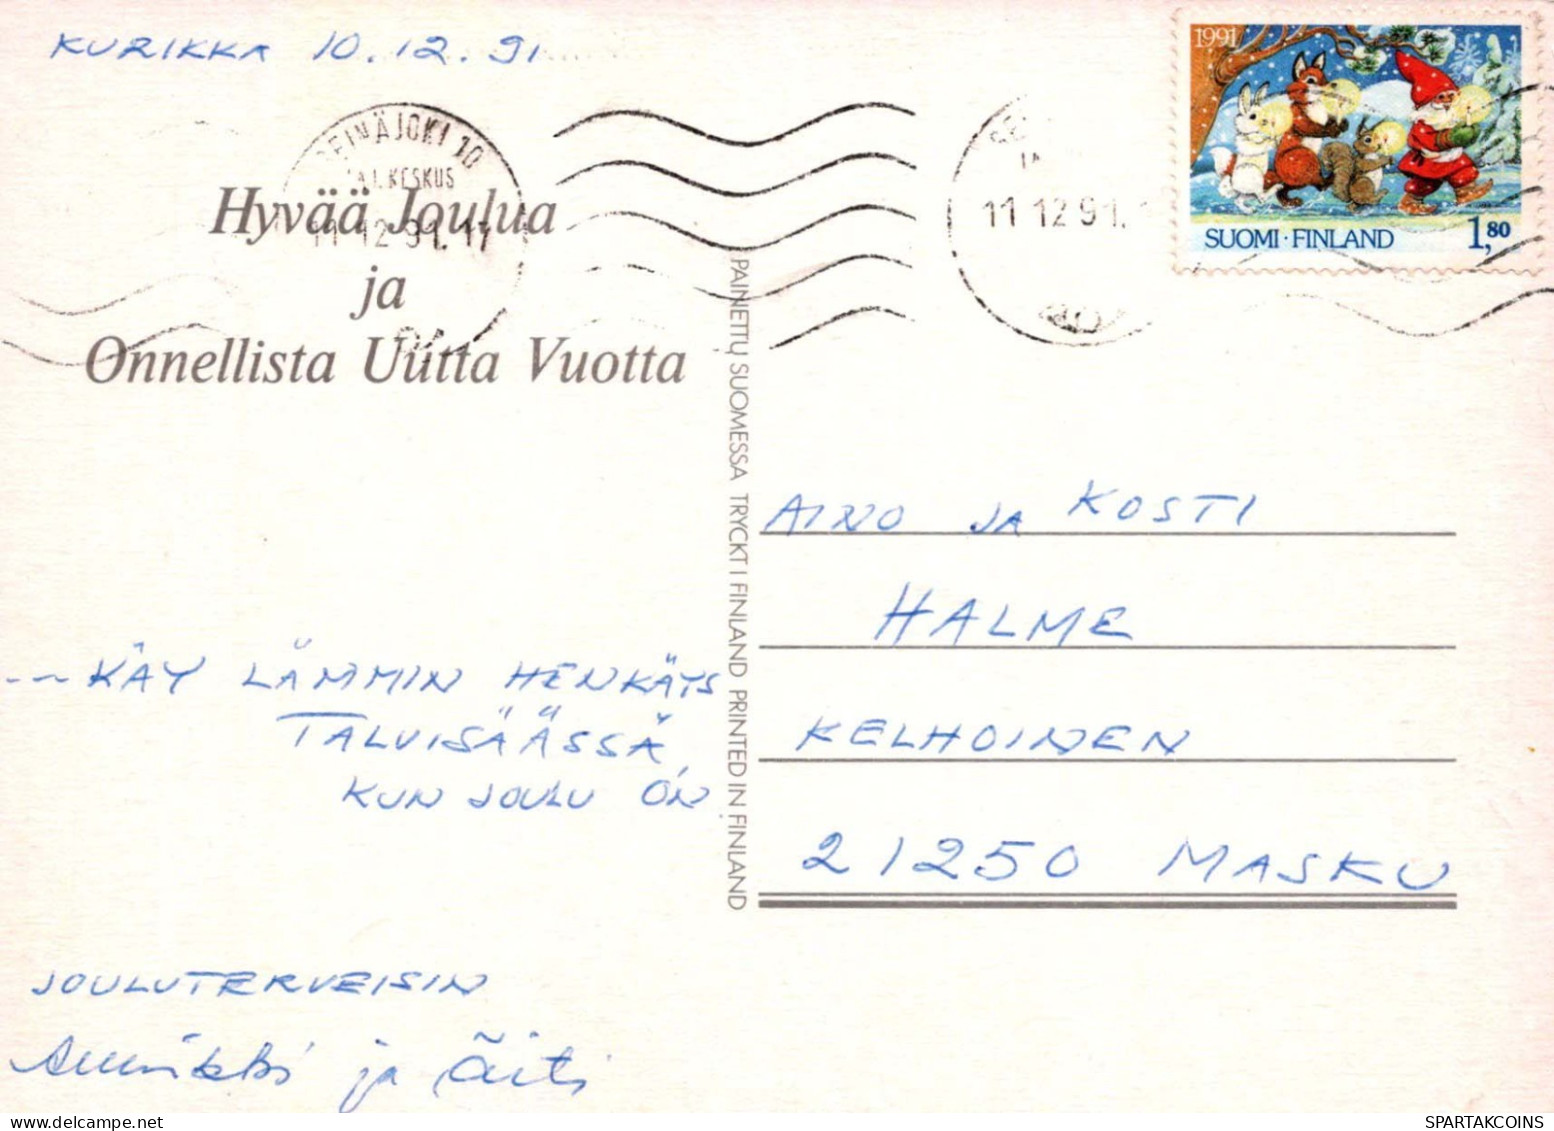 KURIKKA 10.12.91
SEINÄJOKI 10
KESKUS
11 12 91. 17
Hyvää Joulua
ja
Onnellista Uutta Vuotta
11 12 91.
1991
SUOMI·FINLAND 1,80
PAINETTU SUOMESSA TRYCKT I FINLAND PRINTED IN FINLAND
AINO JA KOSTI
HALME
KELHOINEN
21250 MASKU
--- KÄY LÄMMIN HENKÄYS
TALVISÄÄSSÄ,
KUN JOULU ON
JOULUTERVEISIN
Annikki ja Äiti
SPARTAKCOINS